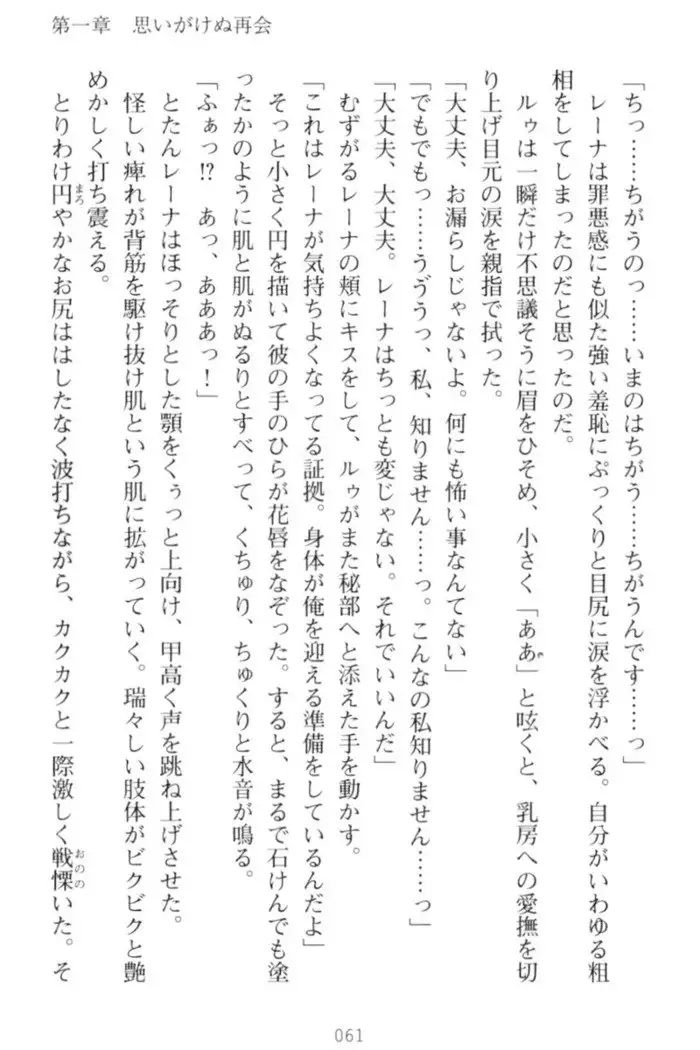 第一章　思いがけぬ再会
「ちっ……ちがうのっ……いまのはちがう……ちがうんです……っ」
レーナは罪悪感にも似た強い羞恥にぷっくりと目尻に涙を浮かべる。自分がいわゆる粗
相をしてしまったのだと思ったのだ。
ルゥは一瞬だけ不思議そうに眉をひそめ、小さく「ああ」と呟くと、乳房への愛撫を切
り上げ目元の涙を親指で拭った。
「大丈夫、お漏らしじゃないよ。何にも怖い事なんてない」
「でもでもっ……うゔうっ、私、知りません……っ。こんなの私知りません……っ」
「大丈夫、大丈夫。レーナはちっとも変じゃない。それでいいんだ」
むずがるレーナの頬にキスをして、ルゥがまた秘部へと添えた手を動かす。
「これはレーナが気持ちよくなってる証拠。身体が俺を迎える準備をしているんだよ」
そっと小さく円を描いて彼の手のひらが花唇をなぞった。すると、まるで石けんでも塗
ったかのように肌と肌がぬるりとすべって、くちゅり、ちゅくりと水音が鳴る。
「ふぁっ!?　あっ、あああっ！」
とたんレーナはほっそりとした顎をくぅっと上向け、甲高く声を跳ね上げさせた。
怪しい痺れが背筋を駆け抜け肌という肌に拡がっていく。瑞々しい肢体がビクビクと艶
めかしく打ち震える。
とりわけ円(まろ)やかなお尻ははしたなく波打ちながら、カクカクと一際激しく戦慄(おのの)いた。そ
061